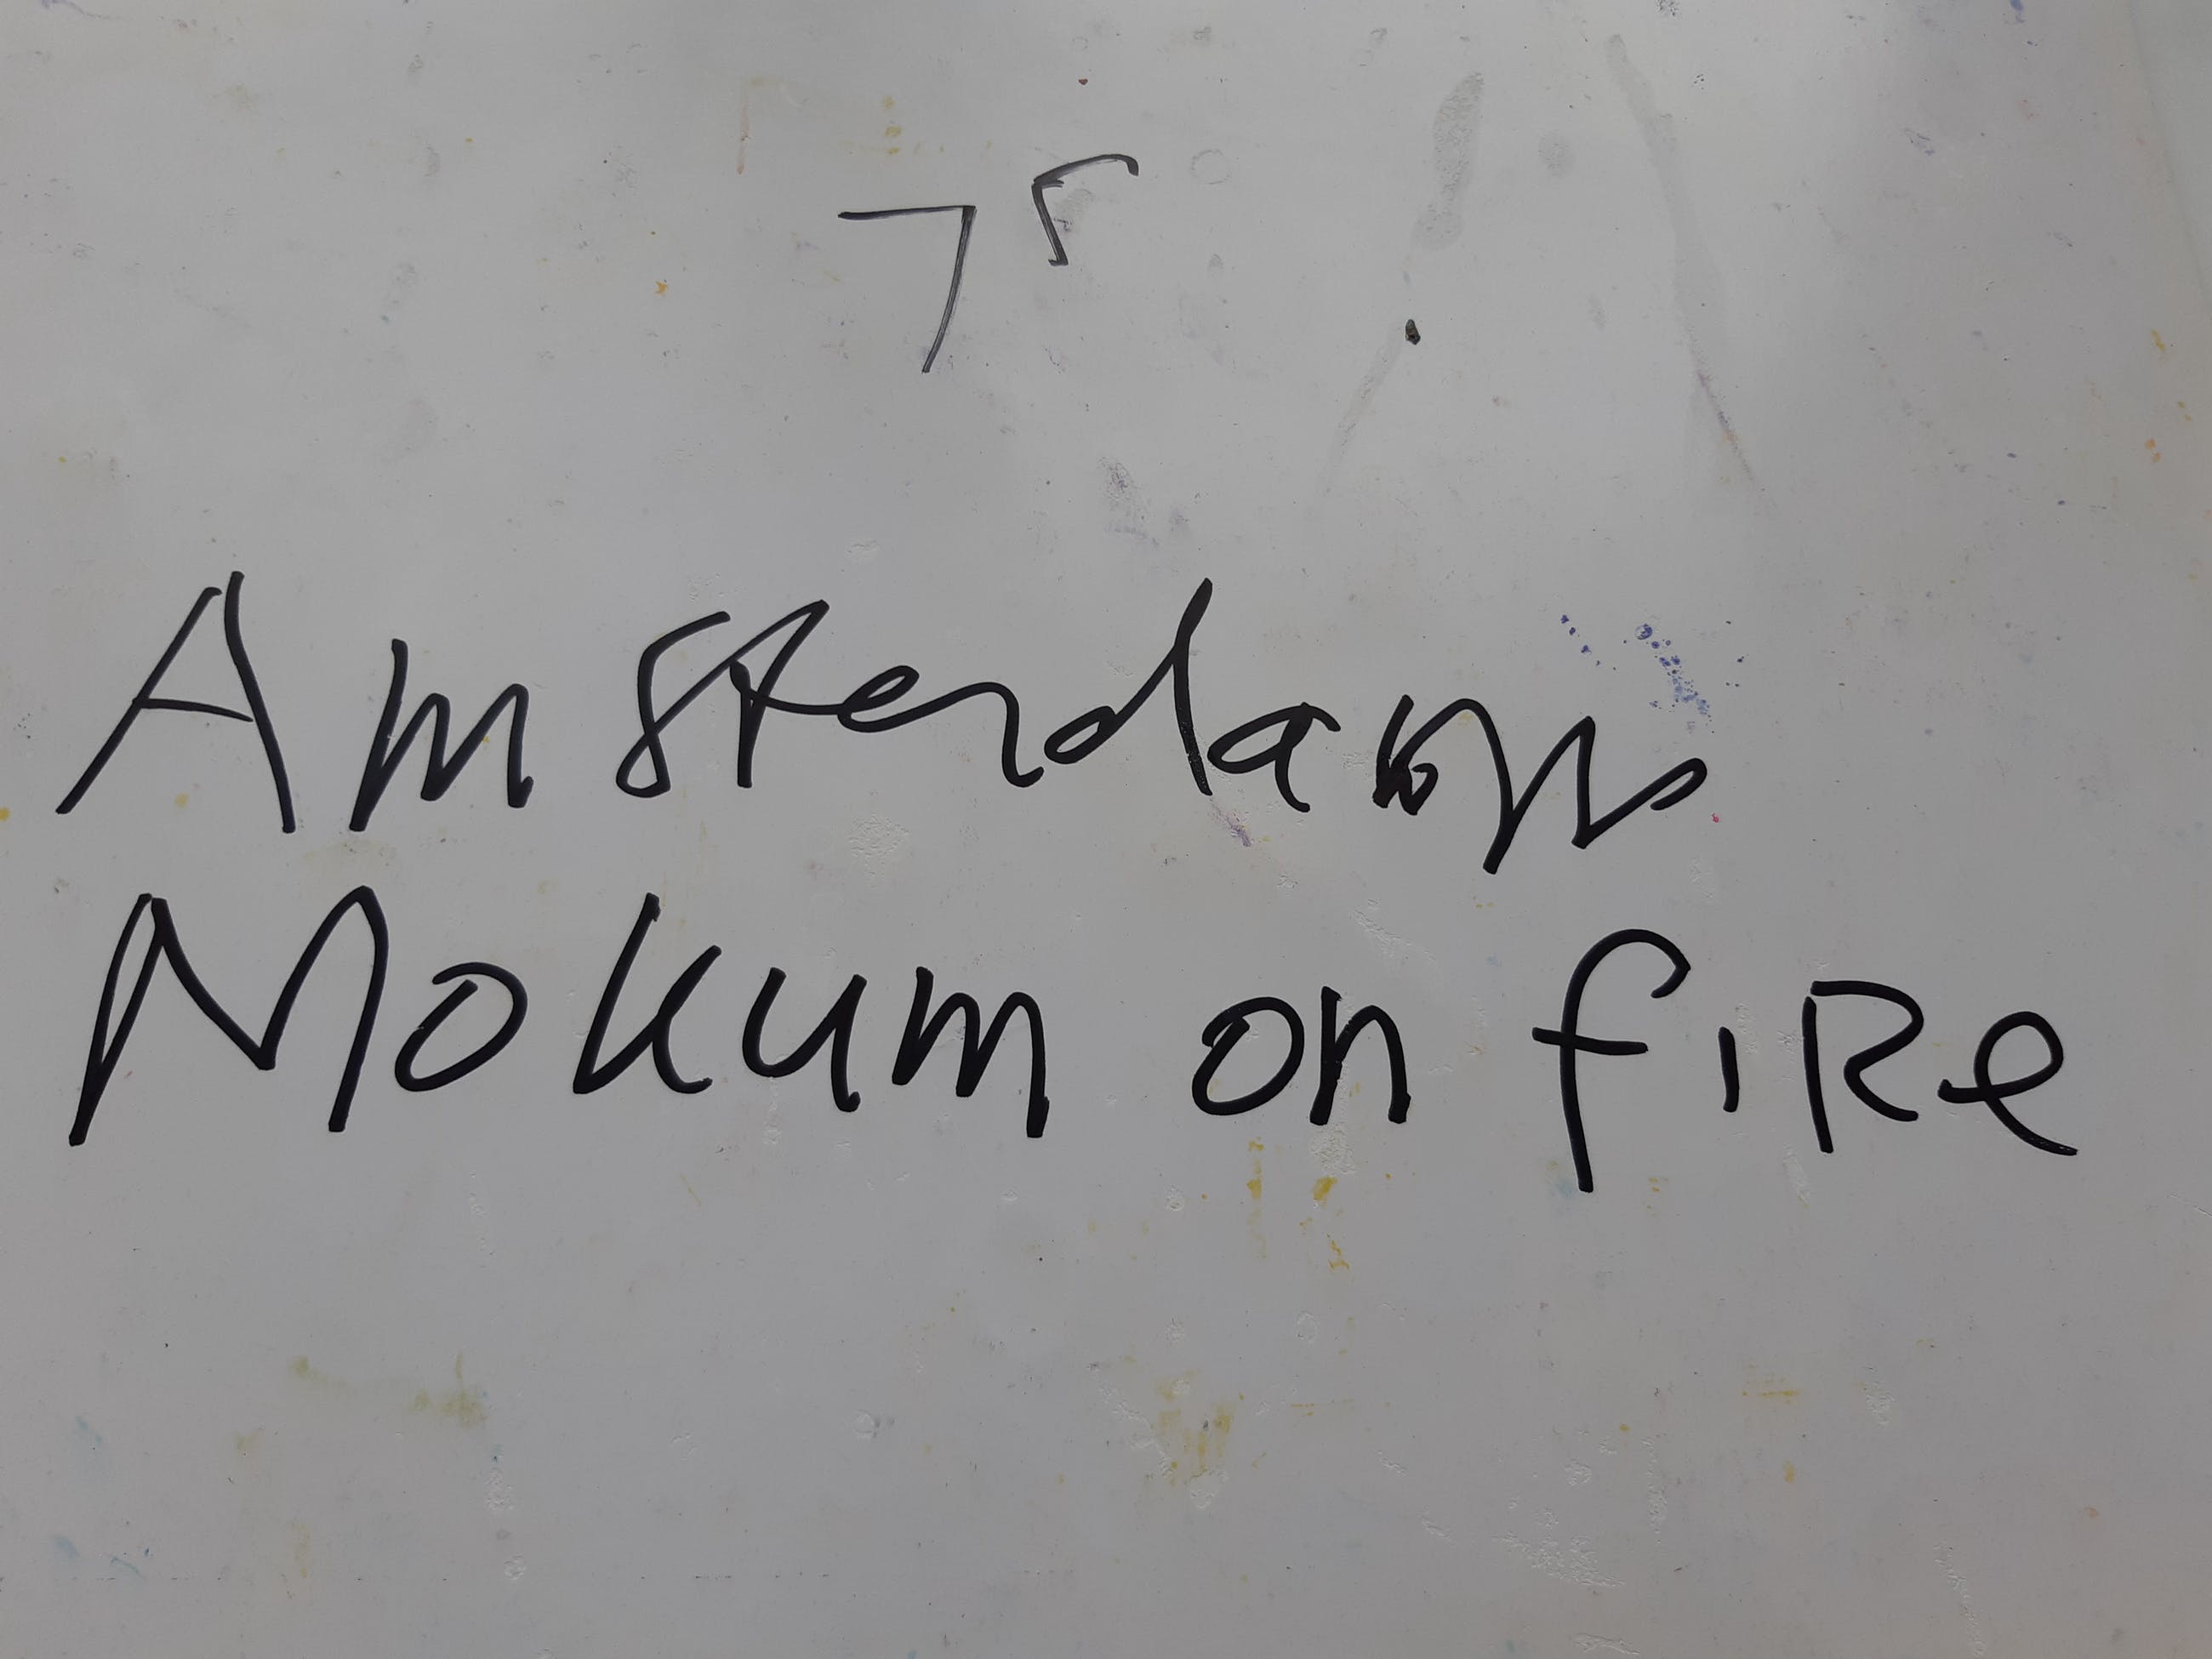 Amsterdam
Mokum on fire